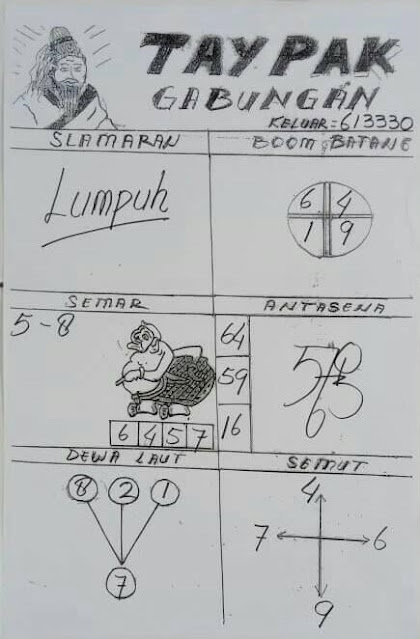 TAY PAK
GABUNGAN
KELUAR = 613330
SLAMARAN
BOOM BATANG
Lumpuh
6 4
1 9
SEMAR
ANTASENA
5-8
64
59
16
6 4 5 7
DEWA LAUT
SEMUT
8 2 1
7
4
7 6
9